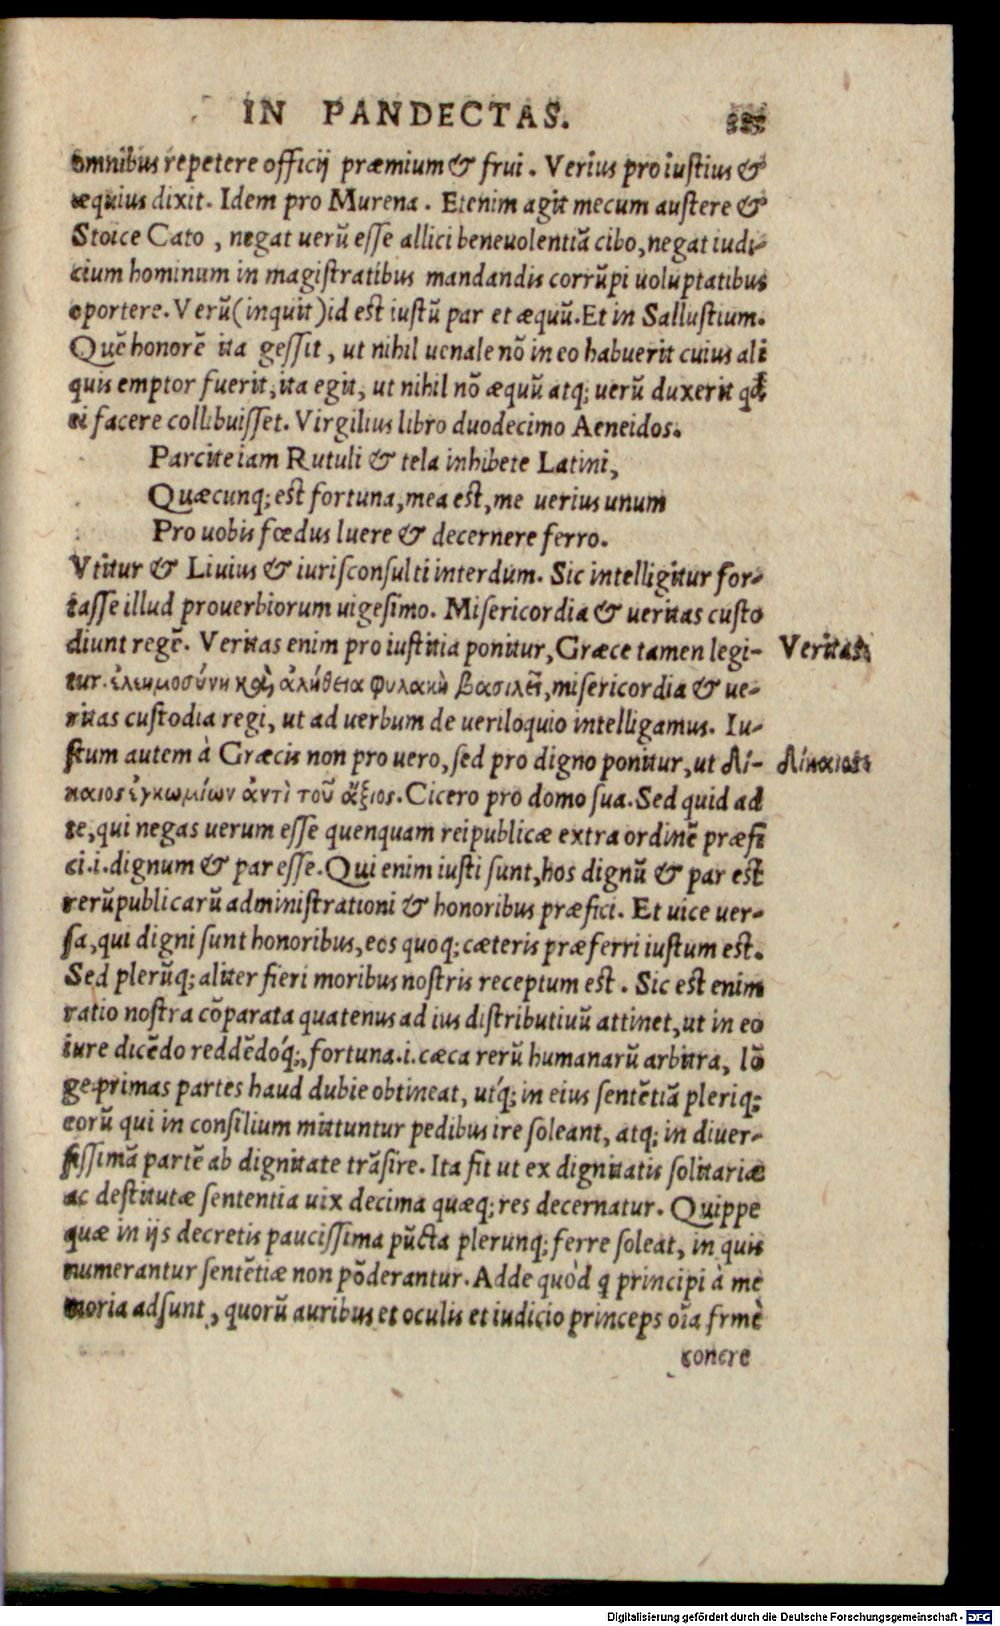 IN PANDECTAS.
omnibus repetere officij præmium & frui. Verius pro iustius &
æquius dixit. Idem pro Murena. Etenim agit mecum austere &
Stoice Cato, negat uerũ esse allici beneuolentiã cibo, negat iudi-
cium hominum in magistratibus mandandis corrũpi uoluptatibus
oportere. Verũ (inquit) id est iustũ par et æquũ. Et in Sallustium.
Quẽ honorẽ ita gessit, ut nihil uenale nõ in eo habuerit cuius ali
quis emptor fuerit, ita egit, ut nihil nõ æquũ atq; uerũ duxerit qđ
ei facere collibuisset. Virgilius libro duodecimo Aeneidos.
Parcite iam Rutuli & tela inhibete Latini,
Quæcunq; est fortuna, mea est, me uerius unum
Pro uobis fœdus luere & decernere ferro.
Vtitur & Liuius & iurisconsulti interdum. Sic intelligitur for-
tasse illud prouerbiorum uigesimo. Misericordia & ueritas custo
diunt regẽ. Veritas enim pro iustitia ponitur, Græce tamen legi-
Veritas.
tur. ἐλεημοσύνη καὶ ἀλήθεια φυλακὴ βασιλεῖ, misericordia & ue-
ritas custodia regi, ut ad uerbum de ueriloquio intelligamus. Iu-
stum autem à Græcis non pro uero, sed pro digno ponitur, ut δί-
Δίκαιος.
καιος ἐγκωμίων ἀντὶ τοῦ ἄξιος. Cicero pro domo sua. Sed quid ad
te, qui negas uerum esse quenquam reipublicæ extra ordinẽ præfi
ci. i. dignum & par esse. Qui enim iusti sunt, hos dignũ & par est
rerũpublicarũ administrationi & honoribus præfici. Et uice uer-
sa, qui digni sunt honoribus, eos quoq; cæteris præferri iustum est.
Sed plerũq; aliter fieri moribus nostris receptum est. Sic est enim
ratio nostra cõparata quatenus ad ius distributiuũ attinet, ut in eo
iure dicẽdo reddẽdoq́;, fortuna .i. cæca rerũ humanarũ arbitra, lõ
ge primas partes haud dubie obtineat, utq́; in eius sentẽtiã pleriq;
eorũ qui in consilium mittuntur pedibus ire soleant, atq; in diuer-
sissimã partẽ ab dignitate trãsire. Ita fit ut ex dignitatis solitariæ
ac destitutæ sententia uix decima quæq; res decernatur. Quippe
quæ in ijs decretis paucissima pũcta plerunq; ferre soleat, in quis
numerantur sentẽtiæ non põderantur. Adde quòd q principi à me
moria adsunt, quorũ auribus et oculis et iudicio princeps oĩa frmè
concre
Digitalisierung gefördert durch die Deutsche Forschungsgemeinschaft - DFG